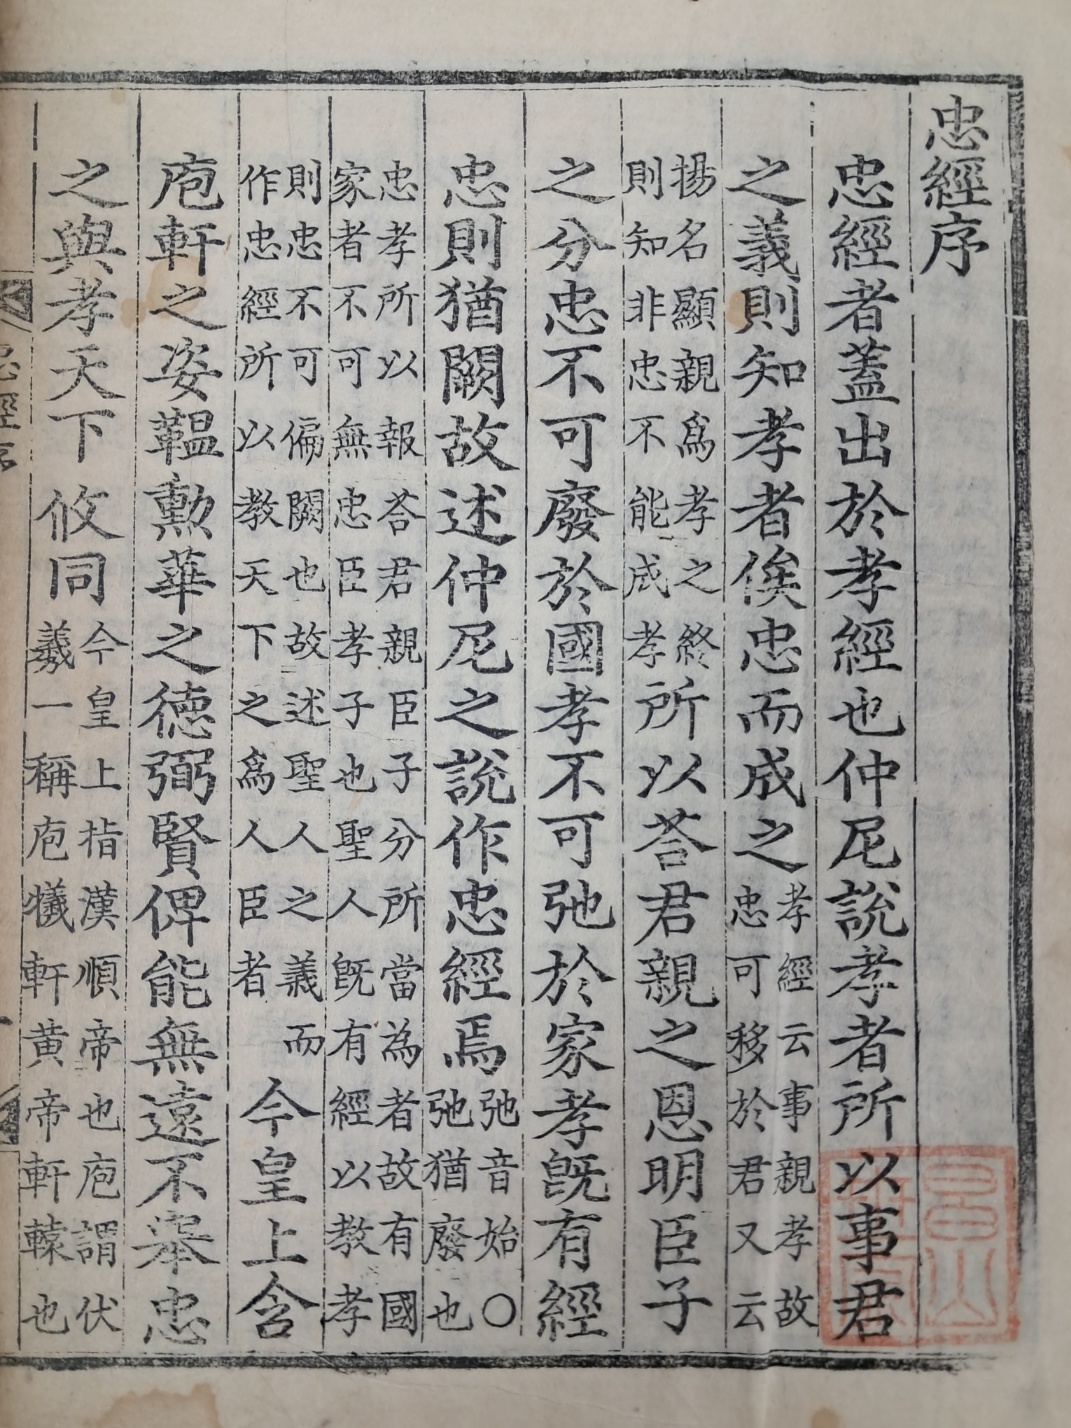 忠經序
忠經者蓋出於孝經也仲尼說孝者所以事君
之義則知孝者俟忠而成之
孝經云事親孝故
忠可移於君又云
揚名顯親爲孝之終
則知非忠不能成孝
所以荅君親之恩明臣子
之分忠不可廢於國孝不可弛於家孝旣有經
忠則猶闕故述仲尼之說作忠經焉
弛音始○
弛猶廢也
忠孝所以報荅君親臣子分所當為者故有國
家者不可無忠臣孝子也聖人旣有經以教孝
則忠不可偏闕也故述聖人之義而
作忠經所以教天下之爲人臣者
今皇上含
庖軒之姿韞勳華之德弼賢俾能無遠不舉忠
之與孝天下攸同
今皇上指漢順帝也庖謂伏
羲一稱庖犧軒黃帝軒轅也
忠經序